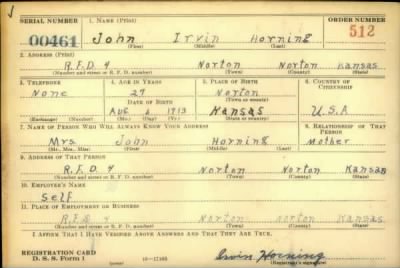 SERIAL NUMBER 1. NAME (Print) ORDER NUMBER
00461 John Irvin Horning 512
(First) (Middle) (Last)
2. ADDRESS (Print)
R.F.D. 4 Norton Norton Kansas
(Number and street or R. F. D. number) (Town) (County) (State)
3. TELEPHONE 4. AGE IN YEARS 5. PLACE OF BIRTH 6. COUNTRY OF CITIZENSHIP
None 27 Norton
DATE OF BIRTH (Town or county)
AUG 6 1913 Kansas U.S.A
(Exchange) (Number) (Mo.) (Day) (Yr.) (State or country)
7. NAME OF PERSON WHO WILL ALWAYS KNOW YOUR ADDRESS 8. RELATIONSHIP OF THAT PERSON
Mrs. John Horning Mother
(Mr., Mrs., Miss) (First) (Middle) (Last)
9. ADDRESS OF THAT PERSON
R.F.D. 4 Norton Norton Kansas
(Number and street or R. F. D. number) (Town) (County) (State)
10. EMPLOYER'S NAME
Self
11. PLACE OF EMPLOYMENT OR BUSINESS
R.F.D 4 Norton Norton Kansas
(Number and street or R. F. D. number) (Town) (County) (State)
I AFFIRM THAT I HAVE VERIFIED ABOVE ANSWERS AND THAT THEY ARE TRUE.
REGISTRATION CARD
D. S. S. Form 1 Irvin Horning
(Registrant's signature)